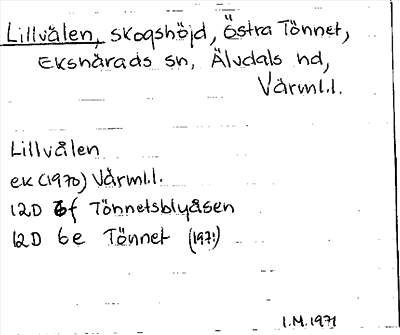 Lillvålen, skogshöjd, Östra Tönnet,
Ekshärads sn, Älvdals hd,
Värml.l.
Lillvålen
ek (1970) Värml.l.
12D 6f Tönnetsblyåsen
12D 6e Tönnet (1971)
I.M. 1971